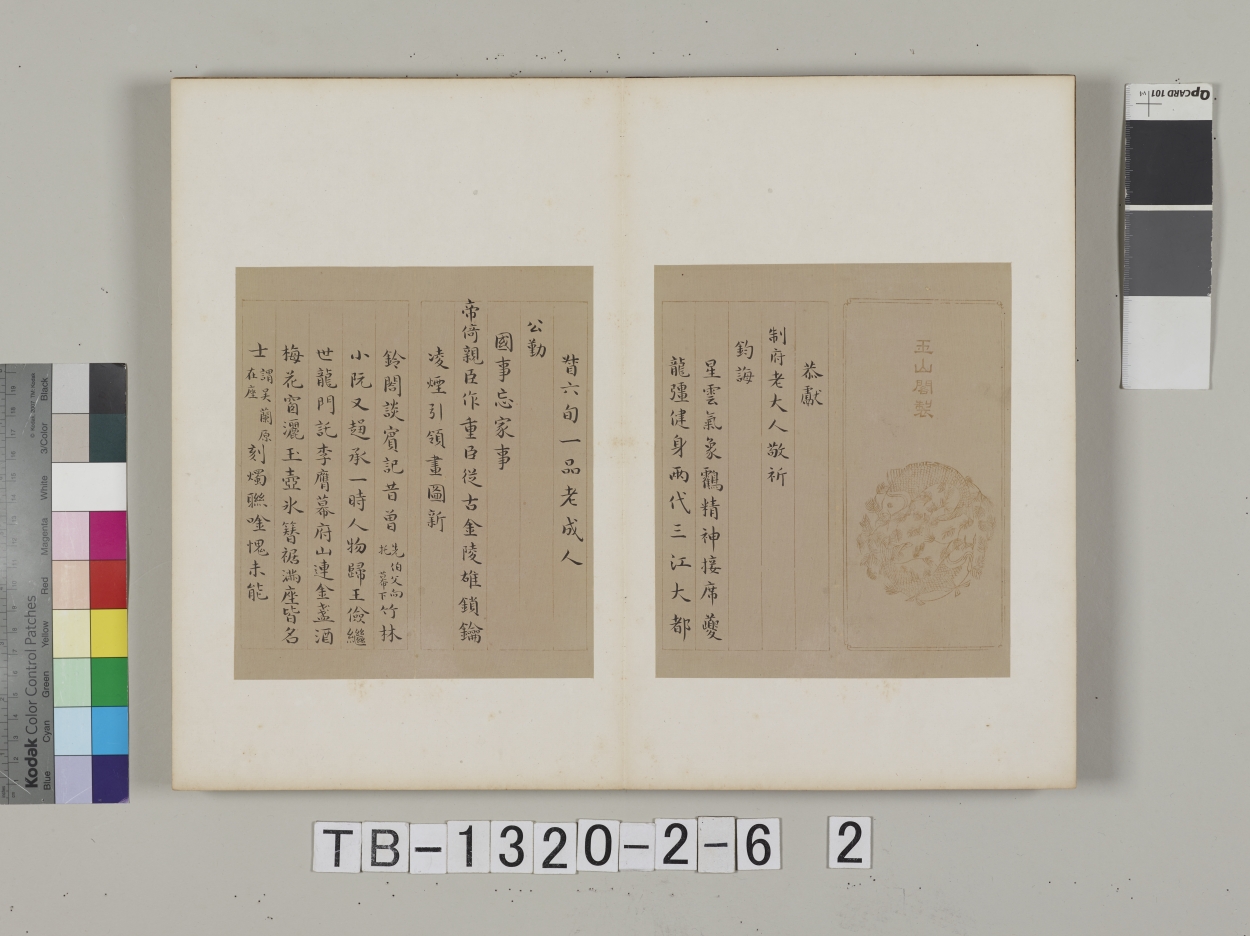 玉山閣製
恭獻
制府老大人敬祈
鈞誨
星雲氣象鸖精神接席夔
龍彊健身兩代三江大都
督六旬一品老成人
公勤
國事忘家事
帝倚親臣作重臣從古金陵雄鎖鑰
凌煙引領畫圖新
鈴閤談賓記昔曾先伯父向托幕下竹林
小阮又趨承一時人物歸王儉繼
世龍門託李膺幕府山連金盞酒
梅花窗灑玉壺氷簪裾滿座皆名
士謂吴蘭原在座刻燭聯唫愧未能
QpCARD 101 v1
Kodak Color Control Patches
© Kodak, 2007
Blue Cyan Green Yellow Red Magenta White 3/Color Black
TB-1320-2-6 2